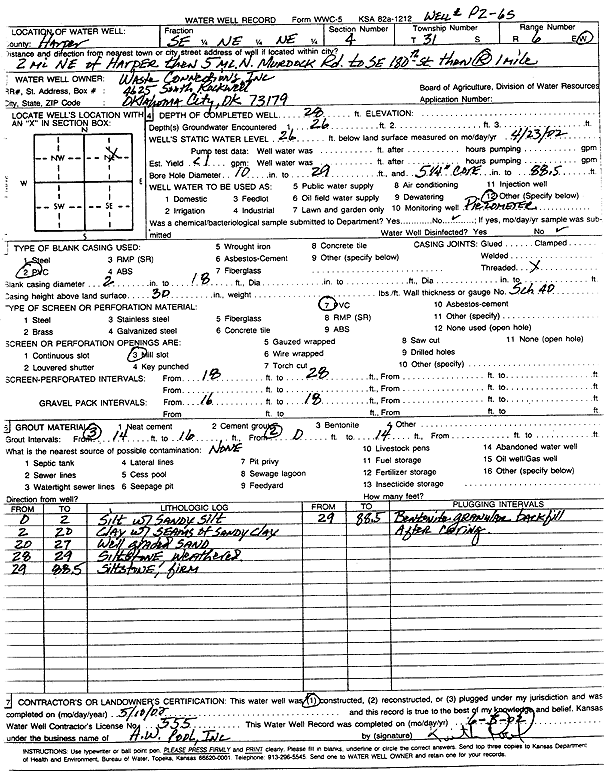 WATER WELL RECORD Form WWC-5 KSA 82a-1212 Well# PZ-6S
LOCATION OF WATER WELL: Fraction Section Number Township Number Range Number
County: Harper SE ¼ NE ¼ NE ¼ 4 T 31 S R 6 E/W
Distance and direction from nearest town or city street address of well if located within city?
2 mi NE of HARPER then 5 mi. N. MURDOCK Rd. to SE 180th St then R 1 mile
WATER WELL OWNER: Waste Connections, Inc
RR#, St. Address, Box # : 4625 South Rockwell Board of Agriculture, Division of Water Resources
City, State, ZIP Code : Oklahoma City, OK 73179 Application Number:
LOCATE WELL'S LOCATION WITH AN "X" IN SECTION BOX:
N
NW NE
W E
SW SE
S
4 DEPTH OF COMPLETED WELL 28 ft. ELEVATION:
Depth(s) Groundwater Encountered 1 26 ft. 2 ft. 3 ft.
WELL'S STATIC WATER LEVEL 26 ft. below land surface measured on mo/day/yr 4/23/02
Pump test data: Well water was ft. after hours pumping gpm
Est. Yield <1 gpm: Well water was ft. after hours pumping gpm
Bore Hole Diameter 10 in. to 29 ft., and 5 1/4" CORE in. to 88.5 ft.
WELL WATER TO BE USED AS: 5 Public water supply 8 Air conditioning 11 Injection well
1 Domestic 3 Feedlot 6 Oil field water supply 9 Dewatering 12 Other (Specify below)
2 Irrigation 4 Industrial 7 Lawn and garden only 10 Monitoring well PIEZOMETER
Was a chemical/bacteriological sample submitted to Department? Yes No ✓ ; If yes, mo/day/yr sample was submitted Water Well Disinfected? Yes No ✓
TYPE OF BLANK CASING USED: 5 Wrought iron 8 Concrete tile CASING JOINTS: Glued Clamped
1 Steel 3 RMP (SR) 6 Asbestos-Cement 9 Other (specify below) Welded
2 PVC 4 ABS 7 Fiberglass Threaded X
Blank casing diameter 2 in. to 18 ft., Dia in. to ft., Dia in. to ft.
Casing height above land surface 30 in., weight lbs./ft. Wall thickness or gauge No. Sch 40
TYPE OF SCREEN OR PERFORATION MATERIAL: 7 PVC 10 Asbestos-cement
1 Steel 3 Stainless steel 5 Fiberglass 8 RMP (SR) 11 Other (specify)
2 Brass 4 Galvanized steel 6 Concrete tile 9 ABS 12 None used (open hole)
SCREEN OR PERFORATION OPENINGS ARE: 5 Gauzed wrapped 8 Saw cut 11 None (open hole)
1 Continuous slot 3 Mill slot 6 Wire wrapped 9 Drilled holes
2 Louvered shutter 4 Key punched 7 Torch cut 10 Other (specify)
SCREEN-PERFORATED INTERVALS: From 18 ft. to 28 ft., From ft. to ft.
From ft. to ft., From ft. to ft.
GRAVEL PACK INTERVALS: From 16 ft. to 18 ft., From ft. to ft.
From ft. to ft., From ft. to ft.
GROUT MATERIAL: 1 Neat cement 2 Cement grout 3 Bentonite 4 Other
Grout Intervals: 3 14 ft. to 16 ft., From 2 0 ft. to 14 ft., From ft. to ft.
What is the nearest source of possible contamination: NONE 10 Livestock pens 14 Abandoned water well
1 Septic tank 4 Lateral lines 7 Pit privy 11 Fuel storage 15 Oil well/Gas well
2 Sewer lines 5 Cess pool 8 Sewage lagoon 12 Fertilizer storage 16 Other (specify below)
3 Watertight sewer lines 6 Seepage pit 9 Feedyard 13 Insecticide storage
Direction from well? How many feet?
FROM TO LITHOLOGIC LOG FROM TO PLUGGING INTERVALS
0 2 Silt w/ Sandy Silt 29 88.5 Bentonite granular backfill
2 20 Clay w/ Seams of Sandy Clay After Coring.
20 27 Well graded Sand
28 29 Siltstone weathered
29 88.5 Siltstone, firm
7 CONTRACTOR'S OR LANDOWNER'S CERTIFICATION: This water well was (1) constructed, (2) reconstructed, or (3) plugged under my jurisdiction and was
completed on (mo/day/year) 5/10/02 and this record is true to the best of my knowledge and belief. Kansas
Water Well Contractor's License No. 555 This Water Well Record was completed on (mo/day/yr)
under the business name of A.W. Pool, Inc by (signature)
INSTRUCTIONS: Use typewriter or ball point pen. PLEASE PRESS FIRMLY and PRINT clearly. Please fill in blanks, underline or circle the correct answers. Send top three copies to Kansas Department
of Health and Environment, Bureau of Water, Topeka, Kansas 66620-0001. Telephone: 913-296-5545. Send one to WATER WELL OWNER and retain one for your records.